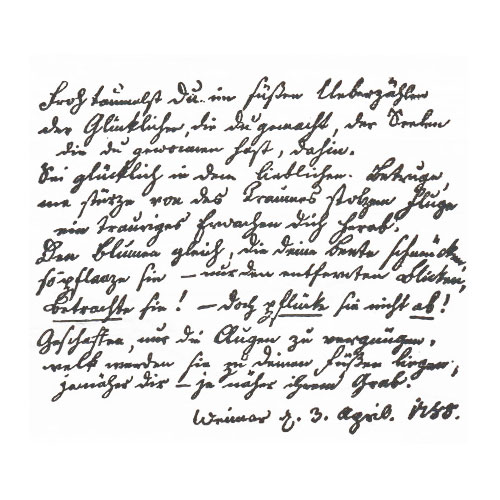 Froh taumelst du im süßen Ueberzählen
der Glücklichen, die du gemacht, der Seelen
die du gewonnen hast, dahin.
Sei glücklich in dem lieblichen Betruge,
nie stürze von des Traumes stolzem Fluge
ein trauriges Erwachen dich herab.
Den Blumen gleich, die deine Beete schmücken,
so pflanze sie — nur den entfernten Blicken,
Betrachte sie! — doch pflücke sie nicht ab!
Geschaffen, nur die Augen zu vergnügen,
welk werden sie zu deinen Füßen liegen,
je näher dir — je näher ihrem Grab.
Weimar d. 3. April. 1788.